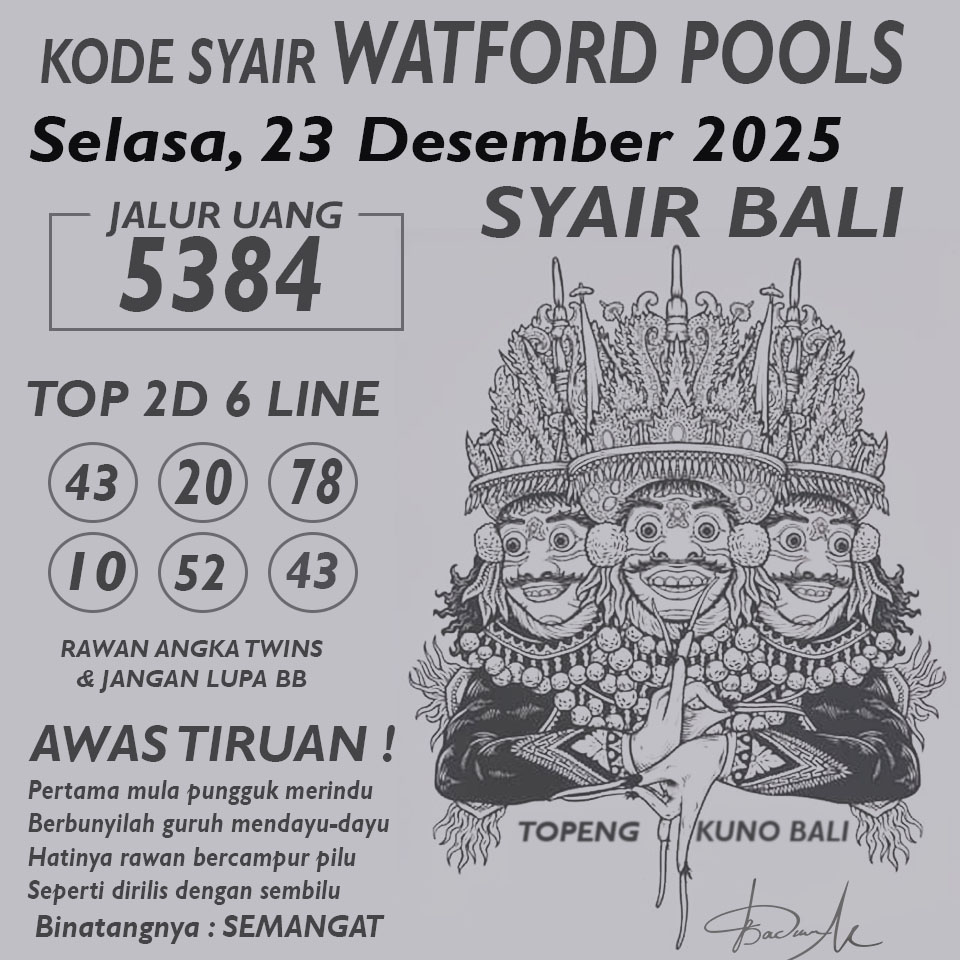 KODE SYAIR WATFORD POOLS
Selasa, 23 Desember 2025
SYAIR BALI
JALUR UANG
5384
TOP 2D 6 LINE
43 20 78
10 52 43
RAWAN ANGKA TWINS
& JANGAN LUPA BB
AWAS TIRUAN !
Pertama mula pungguk merindu
Berbunyilah guruh mendayu-dayu
Hatinya rawan bercampur pilu
Seperti dirilis dengan sembilu
Binatangnya : SEMANGAT
TOPENG KUNO BALI